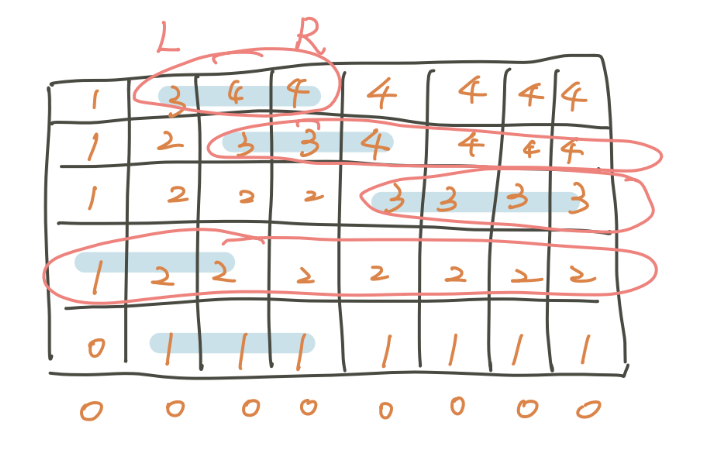 L R
1 3 4 4 4 4 4 4
1 2 3 3 4 4 4 4
1 2 2 2 3 3 3 3
1 2 2 2 2 2 2 2
0 1 1 1 1 1 1 1
0 0 0 0 0 0 0 0